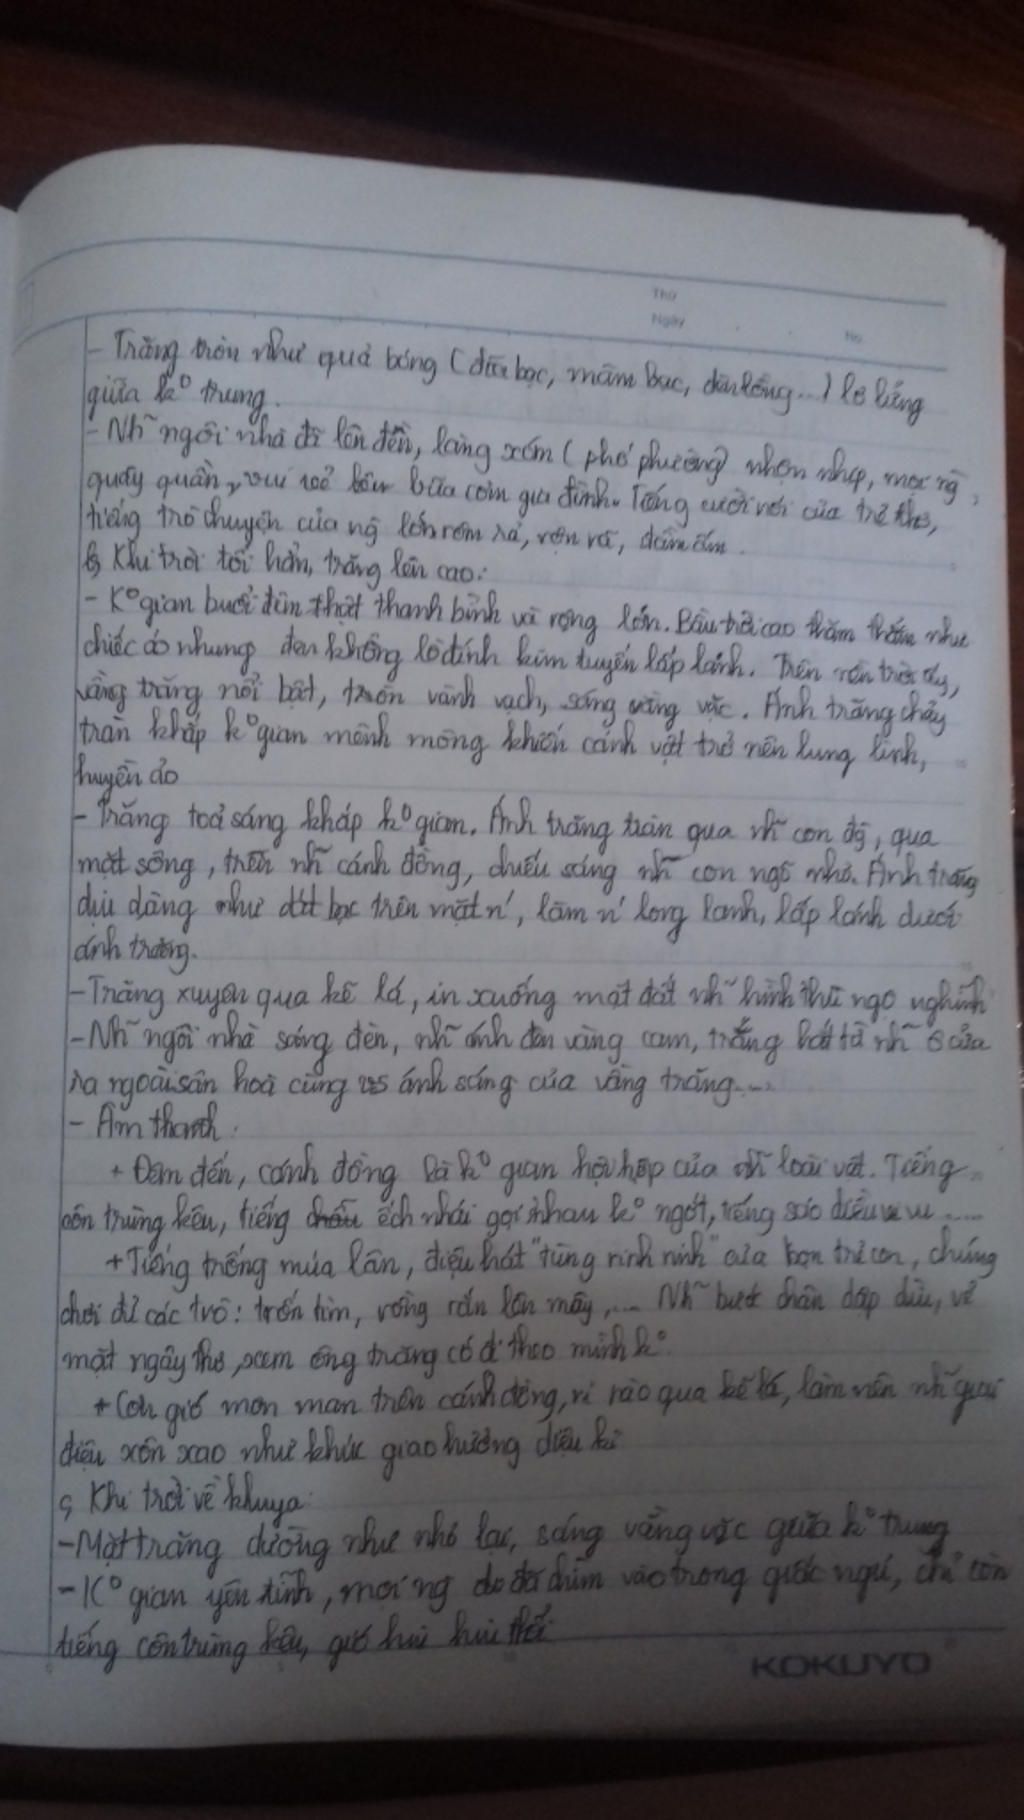 Thứ
Ngày
No.
- Trăng tròn như quả bóng (đĩa bạc, mâm bạc, đèn lồng...) lơ lửng
giữa k° trung.
- Nh~ ngôi nhà đã lên đèn, làng xóm (phố phường) nhộn nhịp, mọi ng`
quây quần, vui vẻ bên bữa cơm gia đình. Tiếng cười nói của trẻ thơ,
tiếng trò chuyện của ng` lớn rôm rả, rộn rã, đầm ấm.
b, Khi trời tối hẳn, trăng lên cao:
- K° gian buổi đêm thật thanh bình và rộng lớn. Bầu trời cao thăm thẳm như
chiếc áo nhung đen khổng lồ đính kim tuyến lấp lánh. Trên nền trời ấy,
vầng trăng nổi bật, tròn vành vạch, sáng vằng vặc. Ánh trăng chảy
tràn khắp k° gian mênh mông khiến cảnh vật trở nên lung linh,
huyền ảo
- Trăng toả sáng khắp k° gian. Ánh trăng tràn qua nh~ con đg`, qua
mặt sông, trên nh~ cánh đồng, chiếu sáng nh~ con ngõ nhỏ. Ánh trăng
dịu dàng như dát bạc trên mặt n', làm n' long lanh, lấp lánh dưới
ánh trăng.
- Trăng xuyên qua kẽ lá, in xuống mặt đất nh~ hình thù ngộ nghĩnh
- Nh~ ngôi nhà sáng đèn, nh~ ánh đèn vàng cam, trắng hắt từ nh~ ô cửa
ra ngoài sân hoà cùng vs ánh sáng của vầng trăng....
- Âm thanh:
+ Đêm đến, cánh đồng là k° gian hội họp của nh~ loài vật. Tiếng
côn trùng kêu, tiếng ếch nhái gọi nhau k° ngớt, tiếng sáo diều vi vu .....
+ Tiếng trống múa lân, điệu hát "tùng rinh rinh" của bọn trẻ con, chúng
chơi đủ các trò: trốn tìm, rồng rắn lên mây,.... Nh~ bước chân dập dìu, vẻ
mặt ngây thơ, xem ông trăng có đi theo mình k°.
+ Cơn gió mơn man trên cánh đồng, rì rào qua kẽ lá, làm nên nh~ giai
điệu xôn xao như khúc giao hưởng diệu kì
c, Khi trời về khuya:
- Mặt trăng dường như nhỏ lại, sáng vằng vặc giữa k° trung
- K° gian yên tĩnh, mọi ng` đã chìm vào trong giấc ngủ, chỉ còn
tiếng côn trùng kêu, gió hiu hiu thổi
KOKUYO